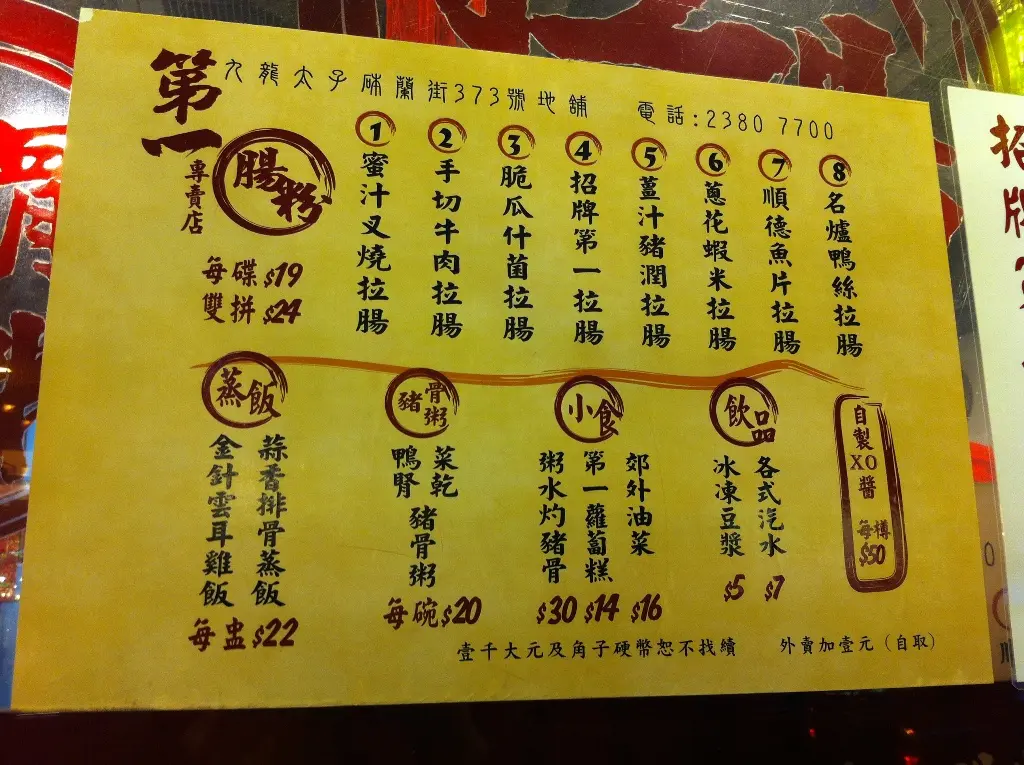 第一
九龍太子砵蘭街373號地舖
電話:2380 7700
腸粉
專賣店
每碟$19
雙拼$24
1 蜜汁叉燒拉腸
2 手切牛肉拉腸
3 脆瓜什菌拉腸
4 招牌第一拉腸
5 薑汁豬潤拉腸
6 蔥花蝦米拉腸
7 順德魚片拉腸
8 名爐鴨絲拉腸
蒸飯
蒜香排骨蒸飯
金針雲耳雞飯
每盅$22
豬骨粥
菜乾
鴨腎
豬骨粥
每碗$20
小食
郊外油菜
$16
第一蘿蔔糕
$14
粥水灼豬骨
$30
飲品
各式汽水
$7
冰凍豆漿
$5
自製XO醬
每樽
$50
壹千大元及角子硬幣恕不找續
外賣加壹元(自取)
招牌